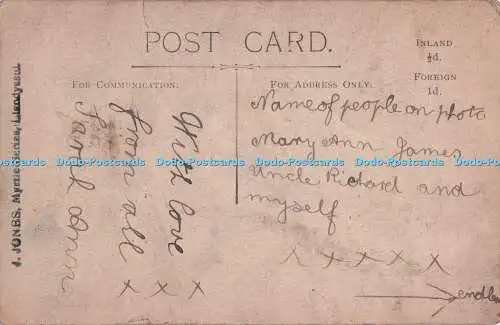 POST CARD.
INLAND
½d.
FOREIGN
1d.
FOR COMMUNICATION.
FOR ADDRESS ONLY.
With love
from all
x x x
Name of people on photo
Mary Ann James
Uncle Richard and
myself.
x x x x x
J. JONES, Llandyssul.
Dodo-Postcards Dodo-Postcards Dodo-Postcards Dodo-Postcards Dodo-Postcards Dodo-Postcards